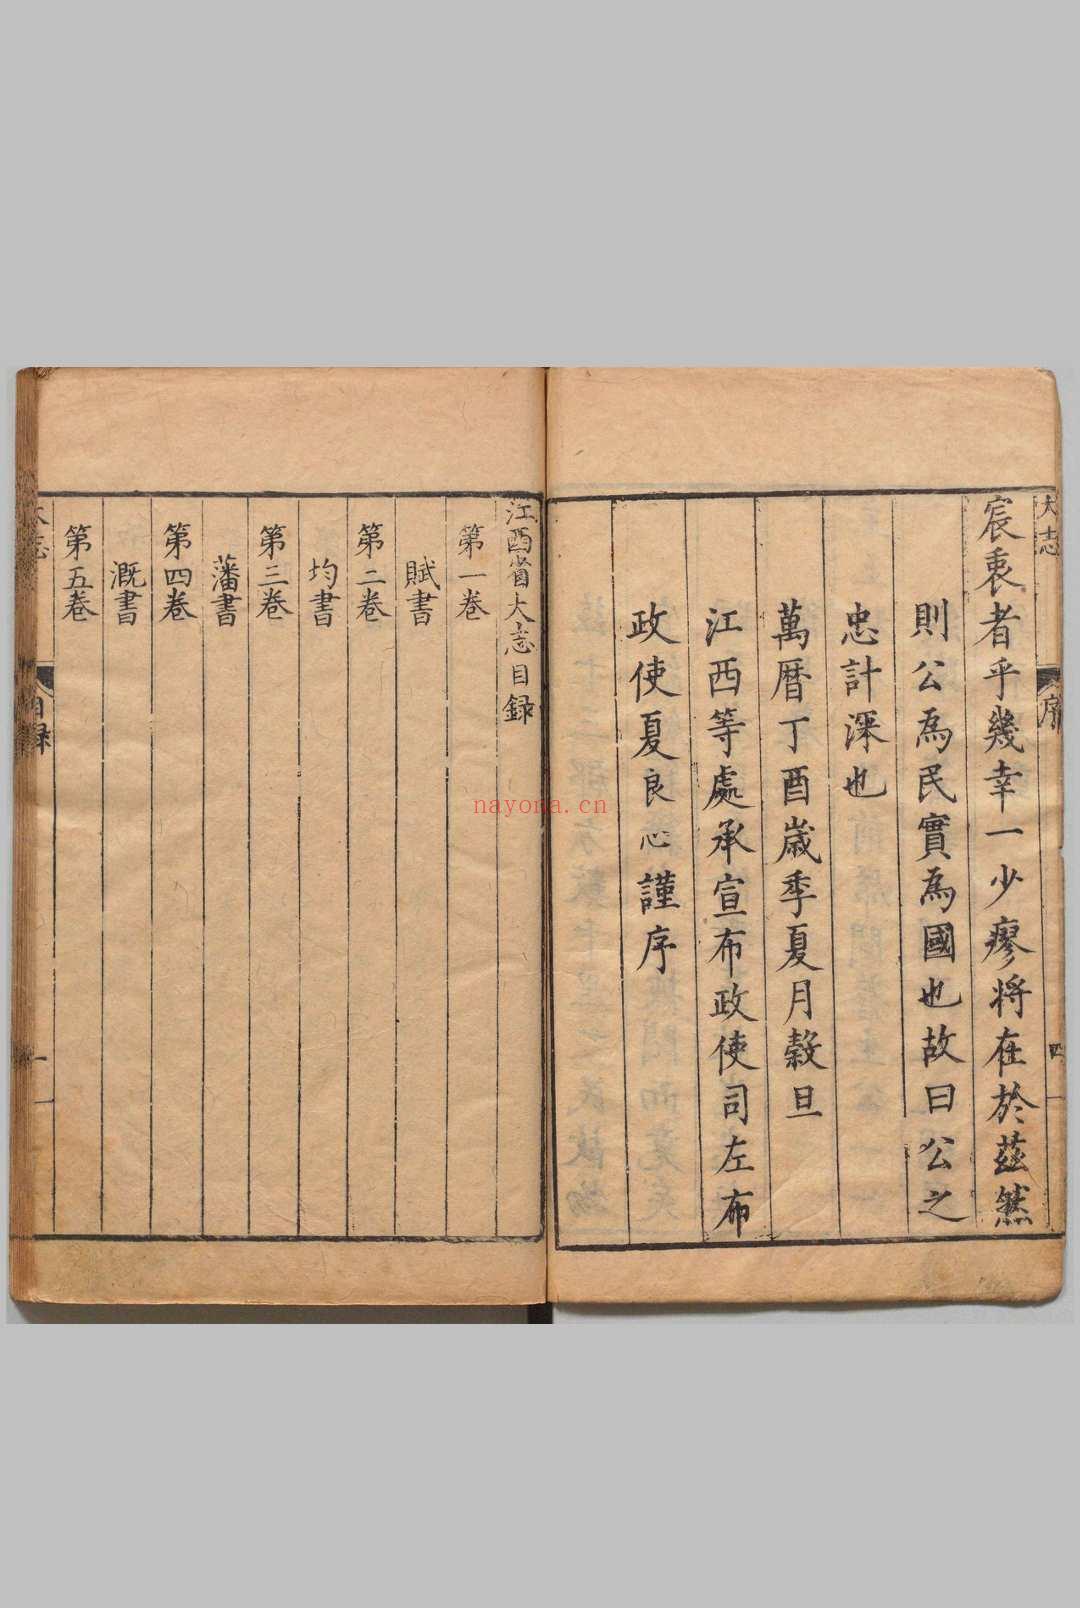 大志
序
四
宸衷者乎幾幸一少瘳將在於茲然
則公為民實為國也故曰公之
忠計深也
萬曆丁酉歲季夏月穀旦
江西等處承宣布政使司左布
政使夏良心謹序
江西省大志目録
第一卷
賦書
第二卷
均書
第三卷
藩書
第四卷
溉書
第五卷
大志
目録
一
nayona.cn